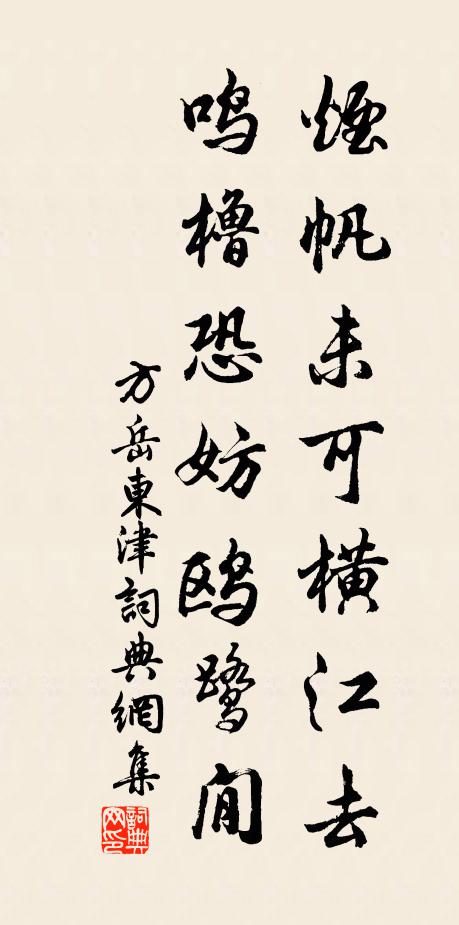 煙帆未可橫江去
鳴櫓恐妨鷗鷺閒
方岳東津詞典網集
詞典网印